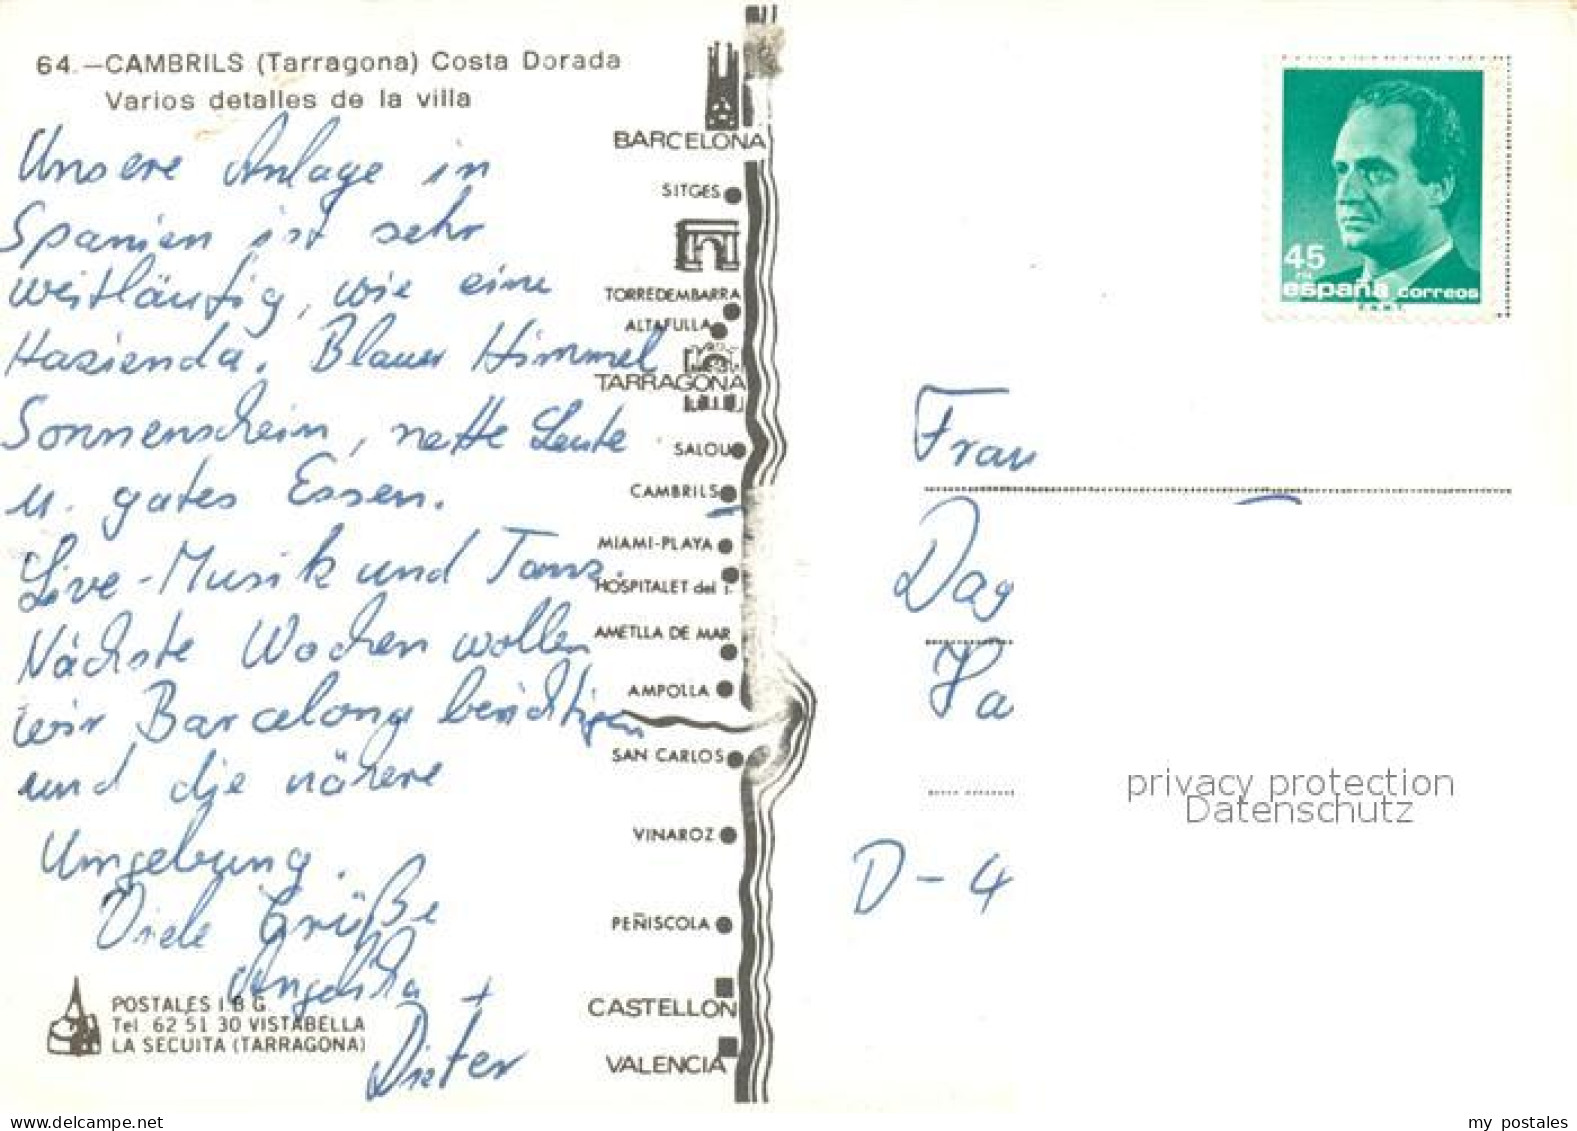 64.-CAMBRILS (Tarragona) Costa Dorada
Varios detalles de la villa
Unsere Anlage in
Spanien ist sehr
weitläufig, wie eine
Hazienda. Blauer Himmel
Sonnenschein, nette Leute
u. gutes Essen.
Live-Musik und Tanz.
Nächste Wochen wollen
wir Barcelona besichtigen
und die nähere
Umgebung.
Viele Grüße
Angelika +
Dieter
POSTALES I.B.G.
Tel. 62 51 30 VISTABELLA
LA SECUITA (TARRAGONA)
BARCELONA
SITGES
TORREDEMBARRA
ALTAFULLA
TARRAGONA
SALOU
CAMBRILS
MIAMI-PLAYA
HOSPITALET del I.
AMETLLA DE MAR
AMPOLLA
SAN CARLOS
VINAROZ
PEÑISCOLA
CASTELLON
VALENCIA
45
españa correos
F.N.M.T.
Frau
Dag
Ha
D-4
privacy protection
Datenschutz
my postales